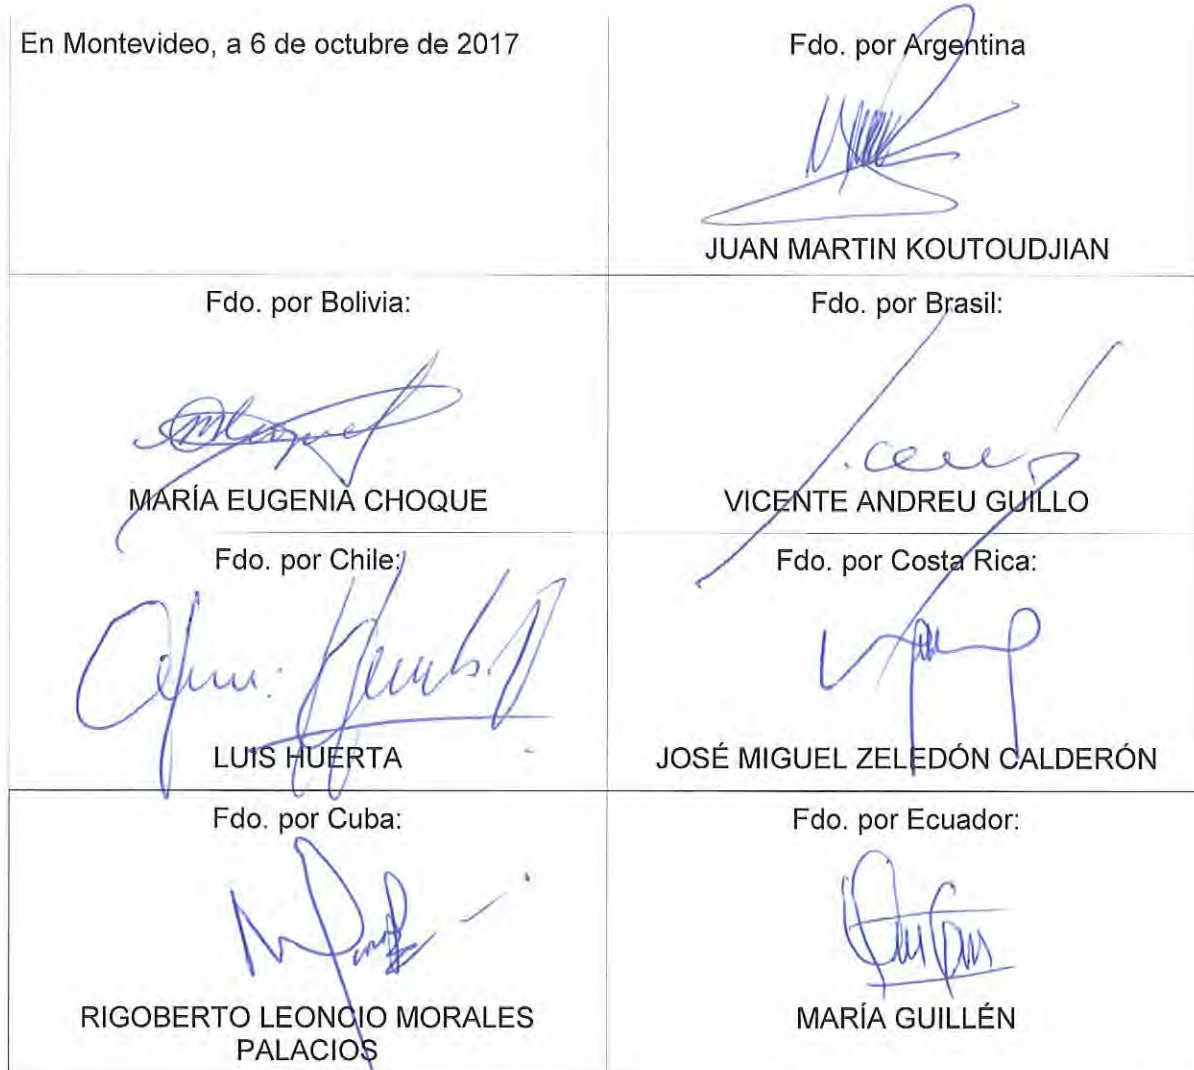 En Montevideo, a 6 de octubre de 2017
Fdo. por Argentina
JUAN MARTIN KOUTOUDJIAN
Fdo. por Bolivia:
MARÍA EUGENIA CHOQUE
Fdo. por Brasil:
VICENTE ANDREU GUILLO
Fdo. por Chile:
LUIS HUERTA
Fdo. por Costa Rica:
JOSÉ MIGUEL ZELEDÓN CALDERÓN
Fdo. por Cuba:
RIGOBERTO LEONCIO MORALES
PALACIOS
Fdo. por Ecuador:
MARÍA GUILLÉN